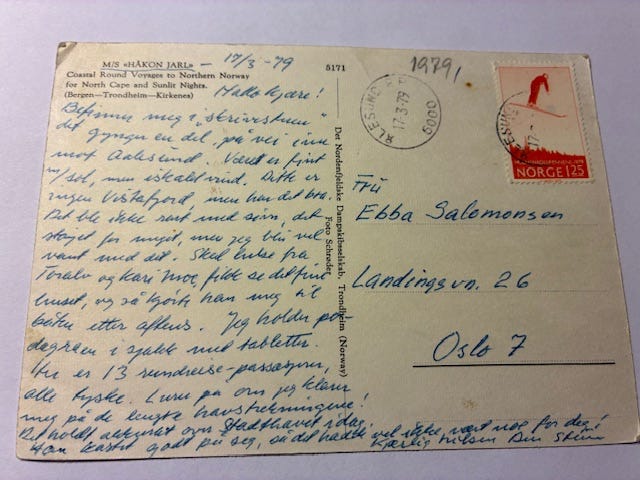 M/S «HÅKON JARL» - 17/3-79
Coastal Round Voyages to Northern Norway
for North Cape and Sunlit Nights.
(Bergen—Trondheim—Kirkenes)
Hallo kjære!
Befinner meg i "skrivestuen"
det gynger en del, på vei inn
mot Aalesund. Været er fint
m/sol, men iskald vind. Dette er
ingen Vistafjord, men har det bra.
Det ble ikke rart med søvn, det
støyet for mye, men jeg blir vel
vant med det. Skal hilse fra
Toralv og Kari Moe, fikk se det fine
huset, og så kjørte han meg til
båten etter aftens. Jeg holder po-
dagraen i sjakk med tabletter.
Her er 13 rundreise-passasjerer,
alle tyske. Lurer på om jeg klarer
meg på de lengste havstrekningene!
Det holdt, akkurat over Stadthavet i dag,
godt på seg, så det hadde vel ikke vært noe for deg!
Kjærlig hilsen Din
5171
Det Nordenfjeldske Dampskibsselskab, Trondheim (Norway)
Foto Schrøder
1979,
ÅLESUND
17-3-79
6000
ÅLESUND
17-
NORGE 125
Frü
Ebba Salomonsen
Landingsvn. 26
Oslo 7